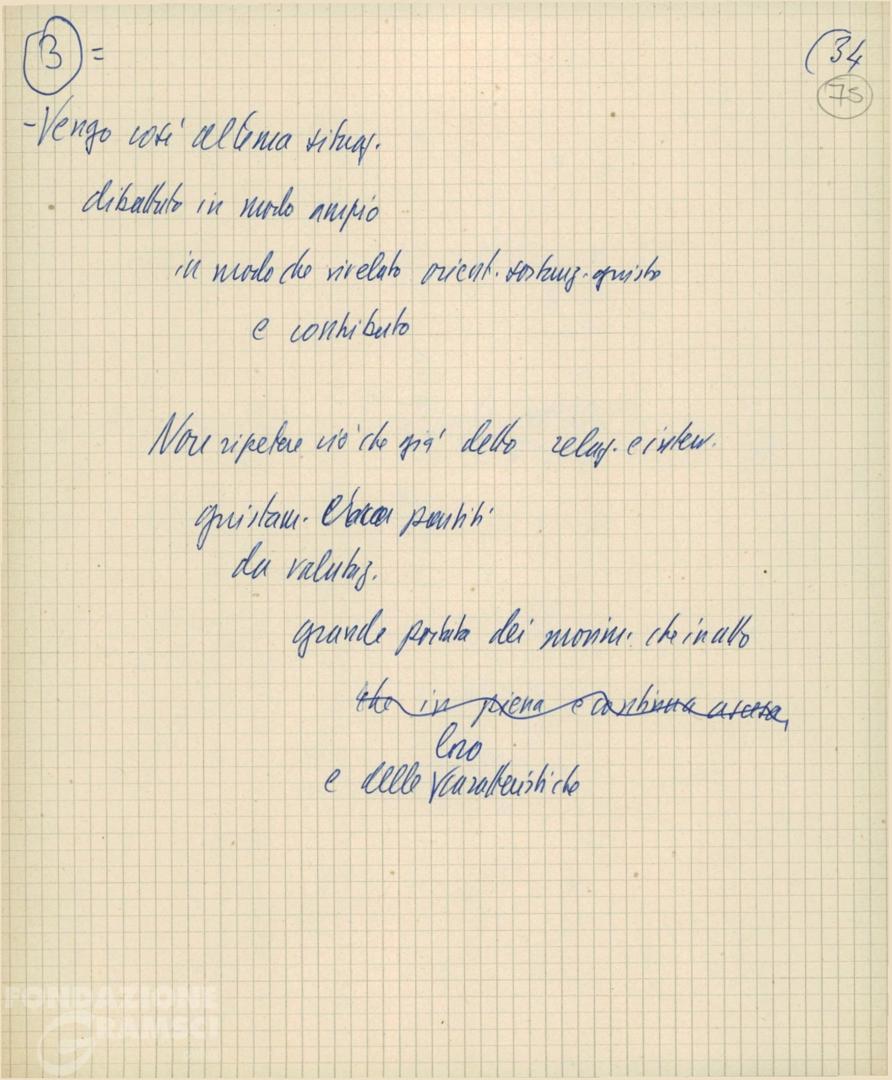 3 =
(34
75
- Vengo così al tema situaz.
dibattuto in modo ampio
in modo che rivelato orient. sostanz. giusto
e contributo
Non ripetere ciò che già detto relaz. e interv.
giustam. partiti
da valutaz.
grande portata dei movim. che in atto
che in piena e continua ascesa,
loro
e delle caratteristiche
FONDAZIONE
GRAMSCI